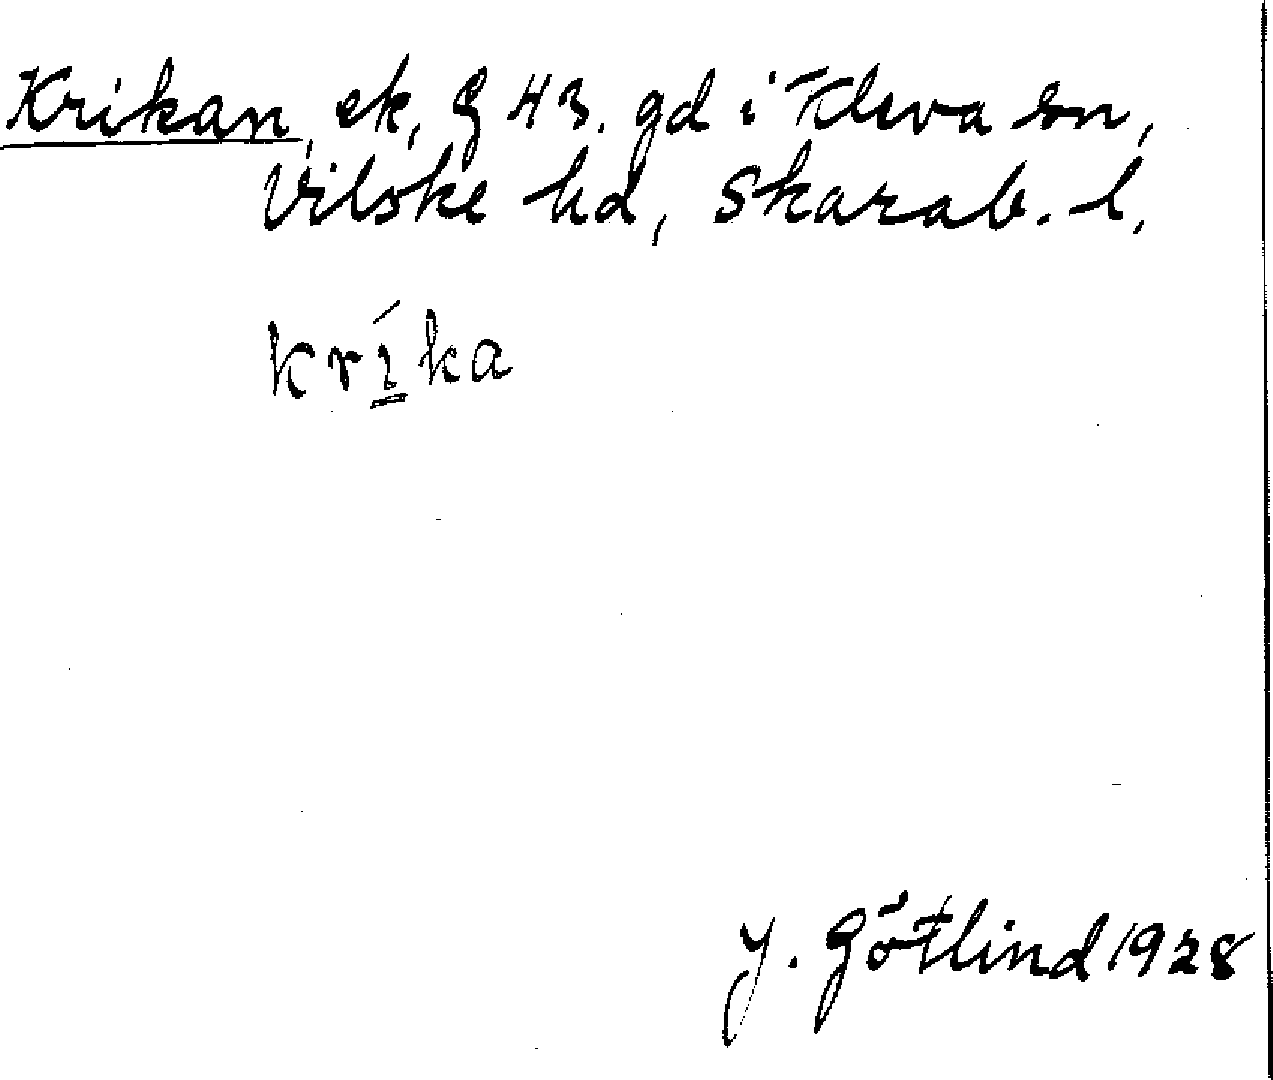 Krikan, ek, G 43. gd i Kleva sn,
Vilske hd, Skarab. l.
kríka
J. Götlind 1928